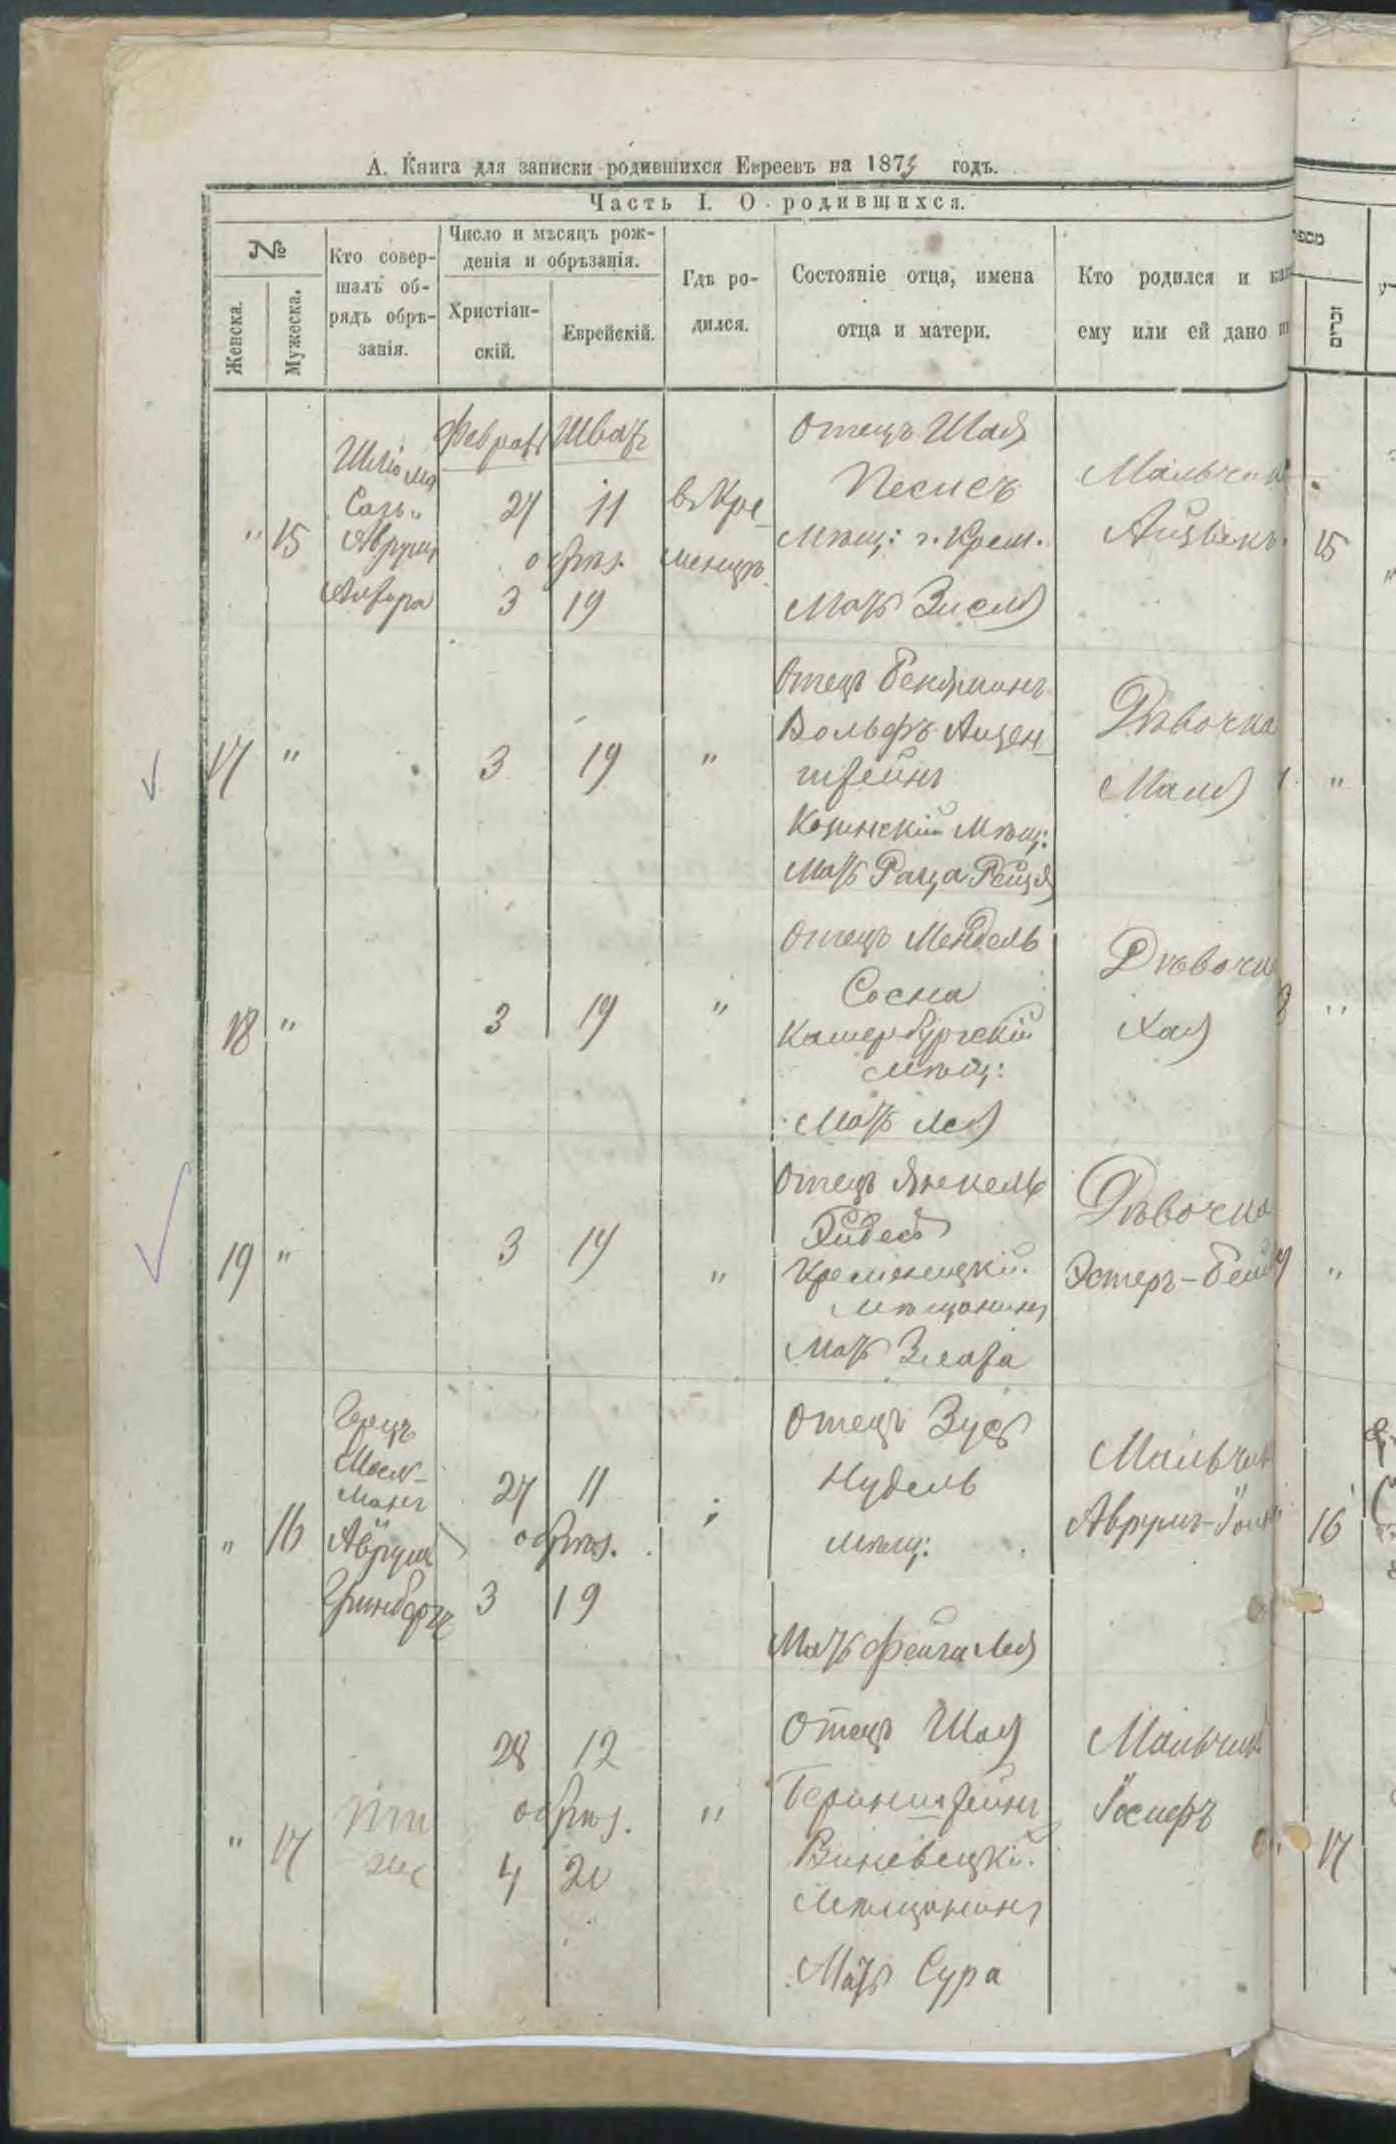 А. Книга для записки родившихся Евреевъ на 1873 годъ.
Часть I. О родившихся.
№
Женска.
Мужеска.
Кто совер-
шалъ об-
рядъ обрѣ-
занія.
Число и мѣсяцъ рож-
денія и обрѣзанія.
Христіан-
скій.
Еврейскій.
Гдѣ ро-
дился.
Состояніе отца, имена
отца и матери.
Кто родился и
ему или ей дано
זכרים
" 15
Шліома
Аврум
Феврал Шват
27 11
обрѣз.
3 19
в Кре-
менцѣ
Отецъ Шая
Песисъ
Мѣщ: г. Крем.
Мать Зисля
Мальчик
Айзикъ
15
17 "
3 19
"
Отецъ Бенямин
Вольфъ Айзен-
штейнъ
Козинскій Мѣщ:
Мать Раца Рейзя
Дѣвочка
Маля
"
18 "
3 19
"
Отецъ Мендель
Сосна
Катербургскій
мѣщ:
Мать Лея
Дѣвочка
Хая
"
19 "
3 19
"
Отецъ Янкель
Кременецкій
мѣщанинъ
Мать Злата
Дѣвочка
Эстеръ-Бейла
"
" 16
Герцъ
Аврум
Гринбергъ
27 11
обрѣз.
3 19
"
Отецъ Зусъ
Нудель
мѣщ:
Мать Фейга Лея
Мальчик
Аврумъ-
16
" 17
тѣ
же
28 12
обрѣз.
4 20
"
Отецъ Шая
Беринштейнъ
Вишневецкій
Мѣщанинъ
Мать Сура
Мальчикъ
Іосифъ
17